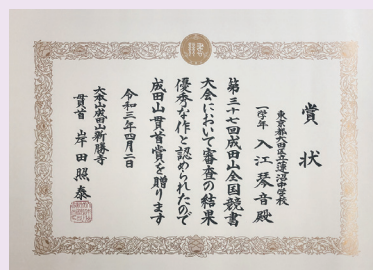 賞状
東京都大田区立蓮沼中学校
一学年 入江琴音殿
第三十七回成田山全国競書
大会において審査の結果
優秀な作と認められたので
成田山貫首賞を贈ります
令和三年四月二日
大本山成田山新勝寺
貫首 岸田照泰